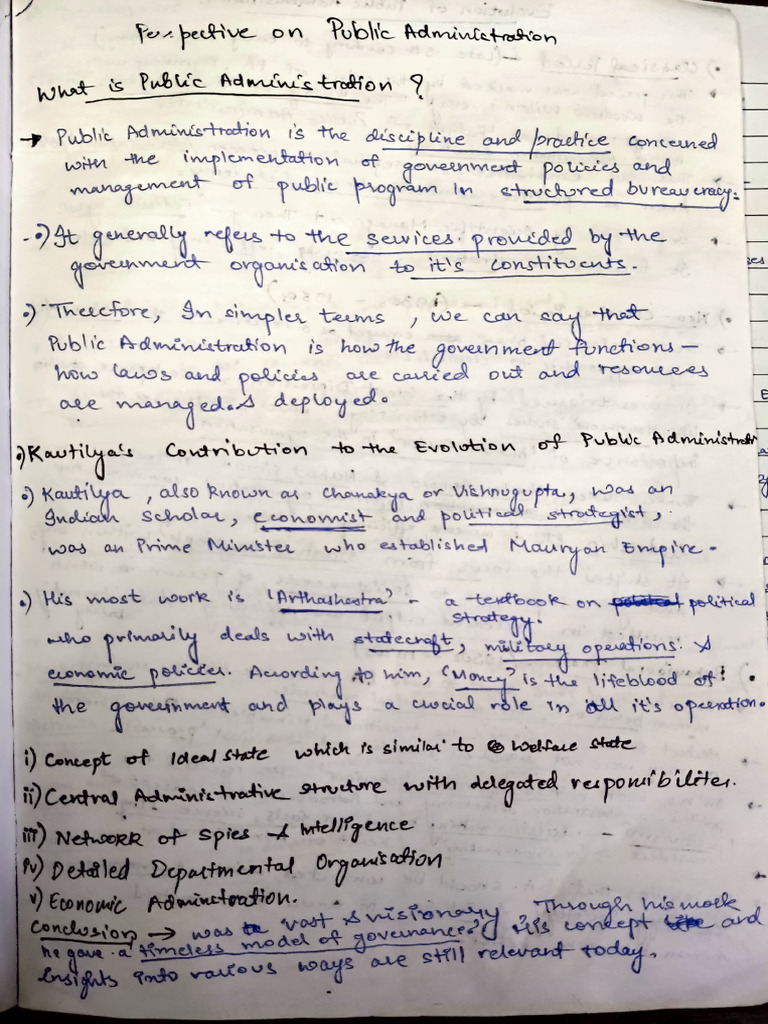 Perspective on Public Administration
What is Public Administration ?
→ Public Administration is the discipline and practice concerned
with the implementation of government policies and
management of public program in structured bureaucracy.
•) It generally refers to the services provided by the
government organisation to it's constituents.
•) Therefore, In simpler terms, we can say that
Public Administration is how the government functions —
how laws and policies are carried out and resources
are managed & deployed.
•) Kautilya's Contribution to the Evolution of Public Administrati
•) Kautilya, also known as Chanakya or Vishnugupta, was an
Indian Scholar, economist and political strategist,
was an Prime Minister who established Mauryan Empire.
•) His most work is 'Arthashastra' - a textbook on political
strategy.
who primarily deals with statecraft, military operations &
economic policies. According to him, 'Money' is the lifeblood of
the government and plays a crucial role in all it's operation.
i) Concept of Ideal State which is similar to Welfare state
ii) Central Administrative structure with delegated responsibilites.
iii) Network of Spies & Intelligence
iv) Detailed Departmental Organisation
v) Economic Adminstration.
Conclusion → was vast & visionary Through his work
he gave a timeless model of governance. His concept and
Insights into various ways are still relevant today.